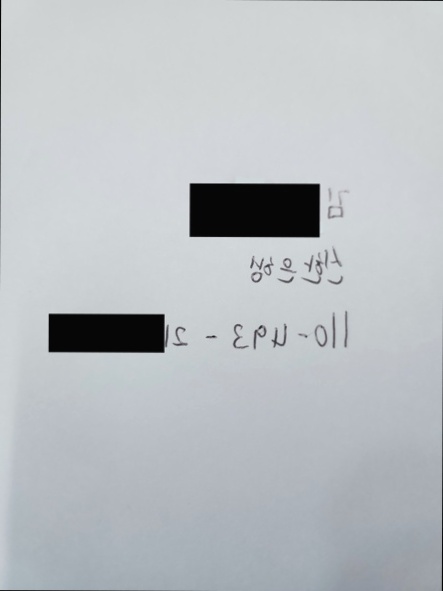 김
신한 은행
110-493-21